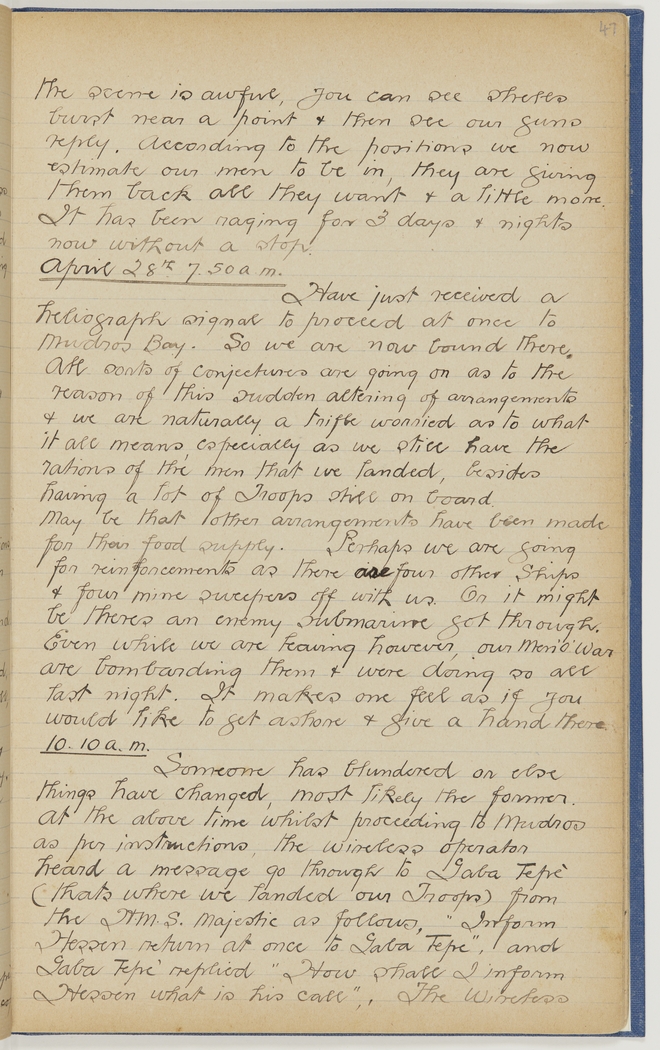 47
the scene is awful, you can see shells
burst near a point & then see our guns
reply. According to the positions we now
estimate our men to be in, they are giving
them back all they want & a little more.
It has been raging for 3 days & nights
now without a stop.
April 28th 7.50 a.m.
Have just received a
heliograph signal to proceed at once to
Mudros Bay. So we are now bound there.
All sorts of conjectures are going on as to the
reason of this sudden altering of arrangements
& we are naturally a trifle worried as to what
it all means, especially as we still have the
rations of the men that we landed, besides
having a lot of Troops still on board.
May be that other arrangements have been made
for their food supply. Perhaps we are going
for reinforcements as there are four other Ships
& four mine sweepers off with us. Or it might
be theres an enemy submarine got through.
Even while we are leaving however, our Men'o'War
are bombarding them & were doing so all
last night. It makes one feel as if you
would like to get ashore & give a hand there.
10.10 a.m.
Someone has blundered or else
things have changed, most likely the former.
At the above time whilst proceeding to Mudros
as per instructions, the wireless operator
heard a message go through to Gaba Tepe'
(thats where we landed our Troops) from
the H.M.S. Majestic as follows, "Inform
Hessen return at once to Gaba Tepe", and
Gaba Tepe' replied "How shall I inform
Hessen what is his call",. The Wireless